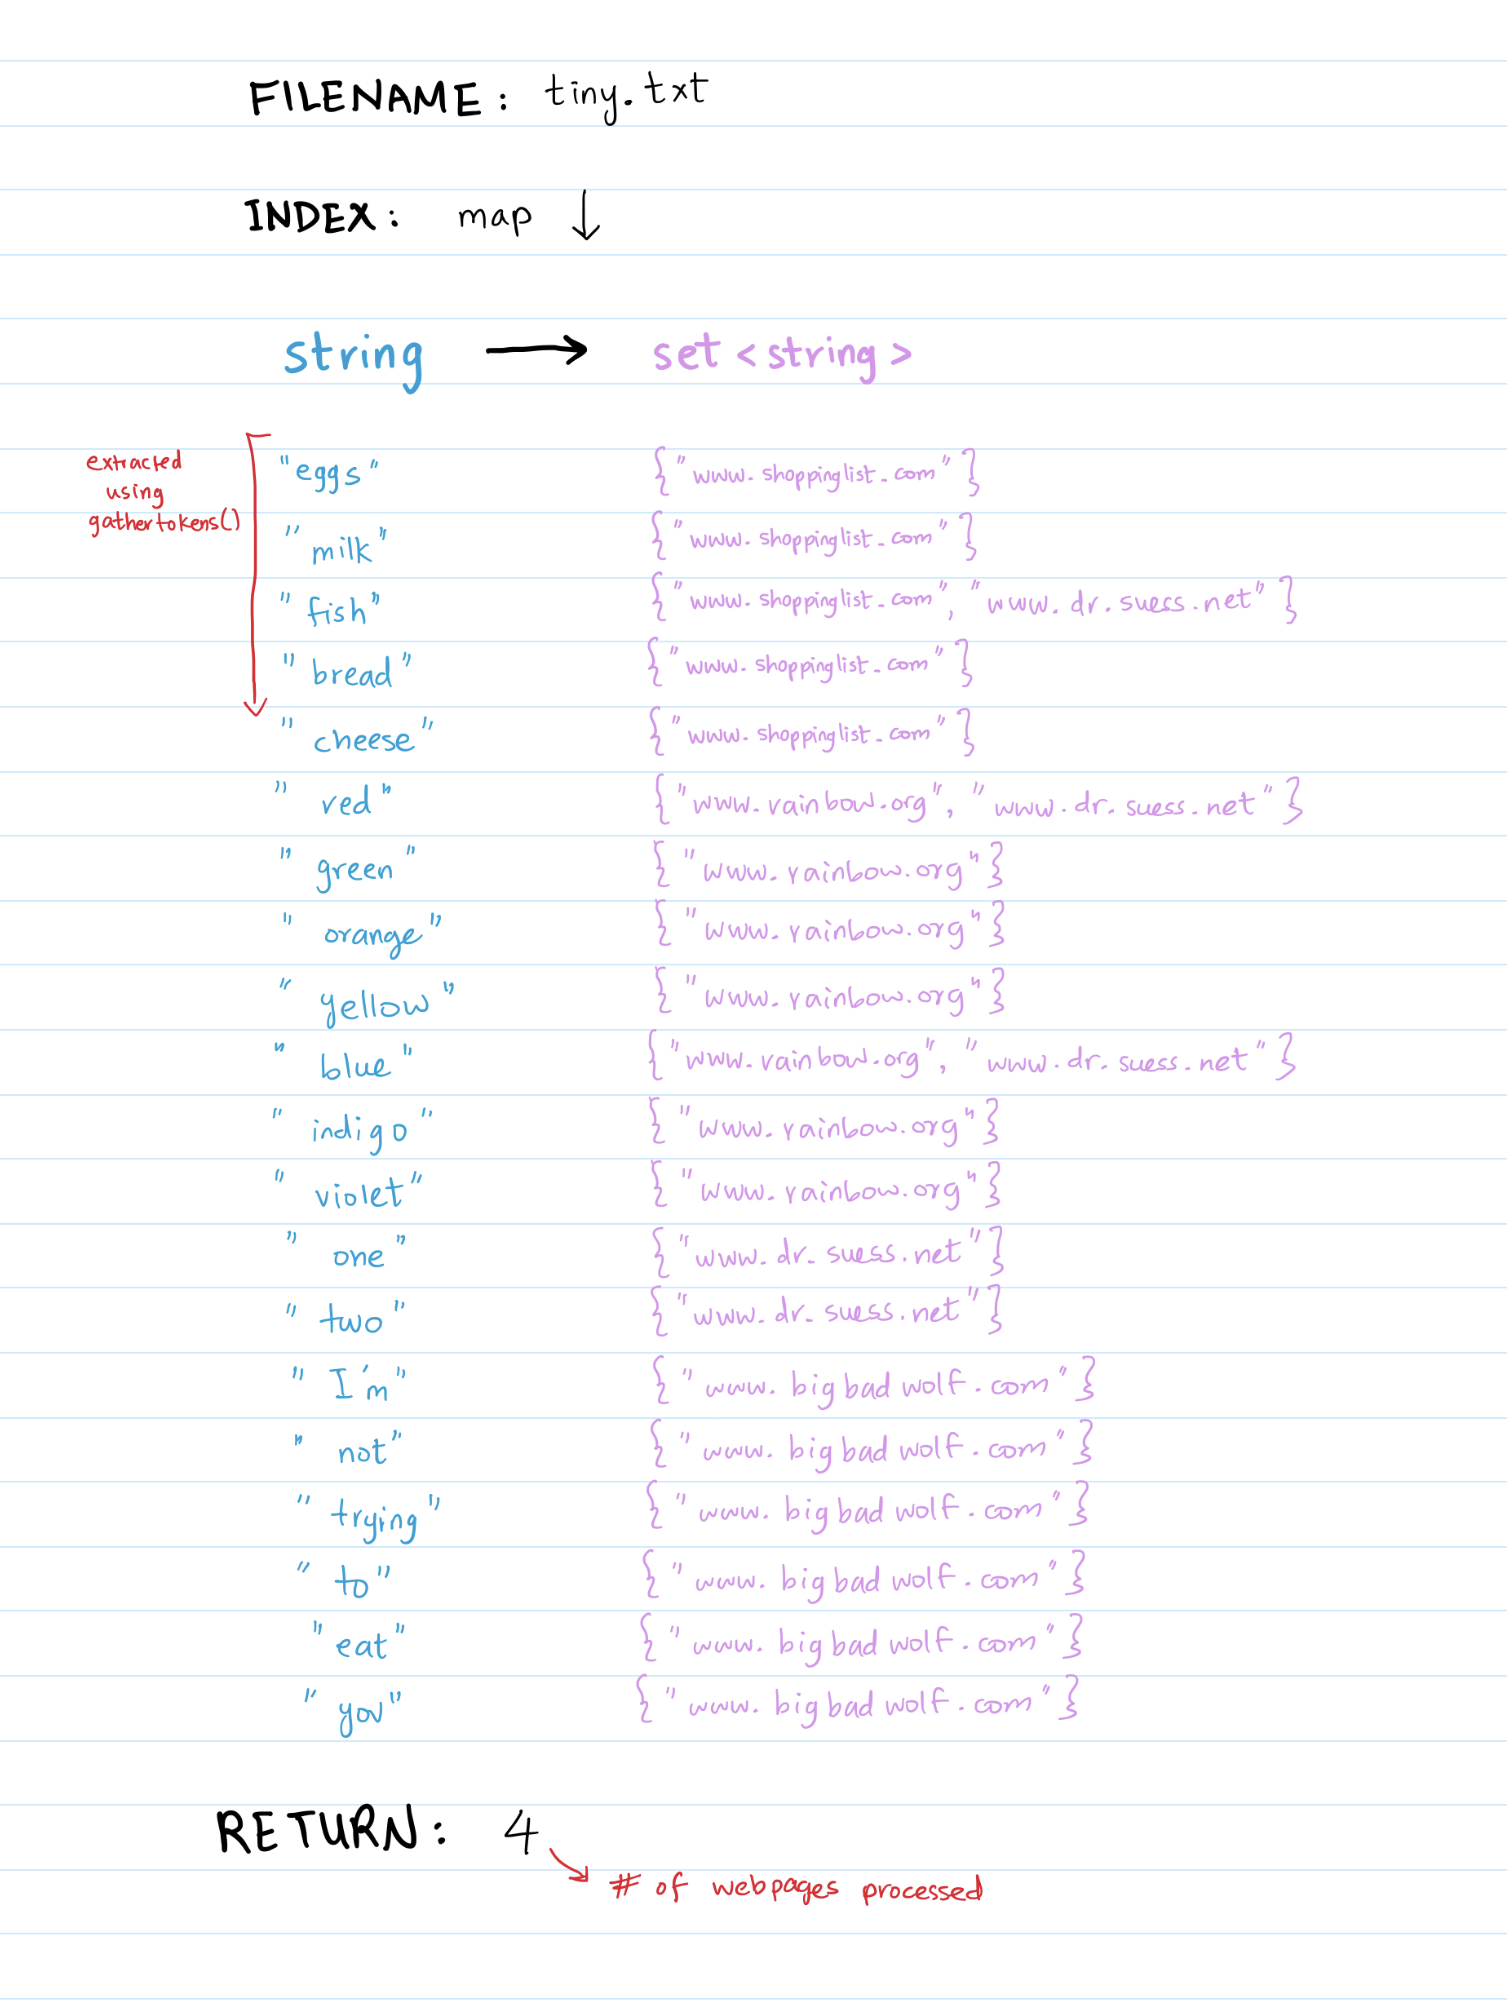 FILENAME: tiny.txt
INDEX: map ↓
string → set <string>
extracted
using
gathertokens()
"eggs" {"www.shoppinglist.com"}
"milk" {"www.shoppinglist.com"}
"fish" {"www.shoppinglist.com", "www.dr.suess.net"}
"bread" {"www.shoppinglist.com"}
"cheese" {"www.shoppinglist.com"}
"red" {"www.rainbow.org", "www.dr.suess.net"}
"green" {"www.rainbow.org"}
"orange" {"www.rainbow.org"}
"yellow" {"www.rainbow.org"}
"blue" {"www.rainbow.org", "www.dr.suess.net"}
"indigo" {"www.rainbow.org"}
"violet" {"www.rainbow.org"}
"one" {"www.dr.suess.net"}
"two" {"www.dr.suess.net"}
"I'm" {"www.bigbadwolf.com"}
"not" {"www.bigbadwolf.com"}
"trying" {"www.bigbadwolf.com"}
"to" {"www.bigbadwolf.com"}
"eat" {"www.bigbadwolf.com"}
"you" {"www.bigbadwolf.com"}
RETURN: 4
# of webpages processed